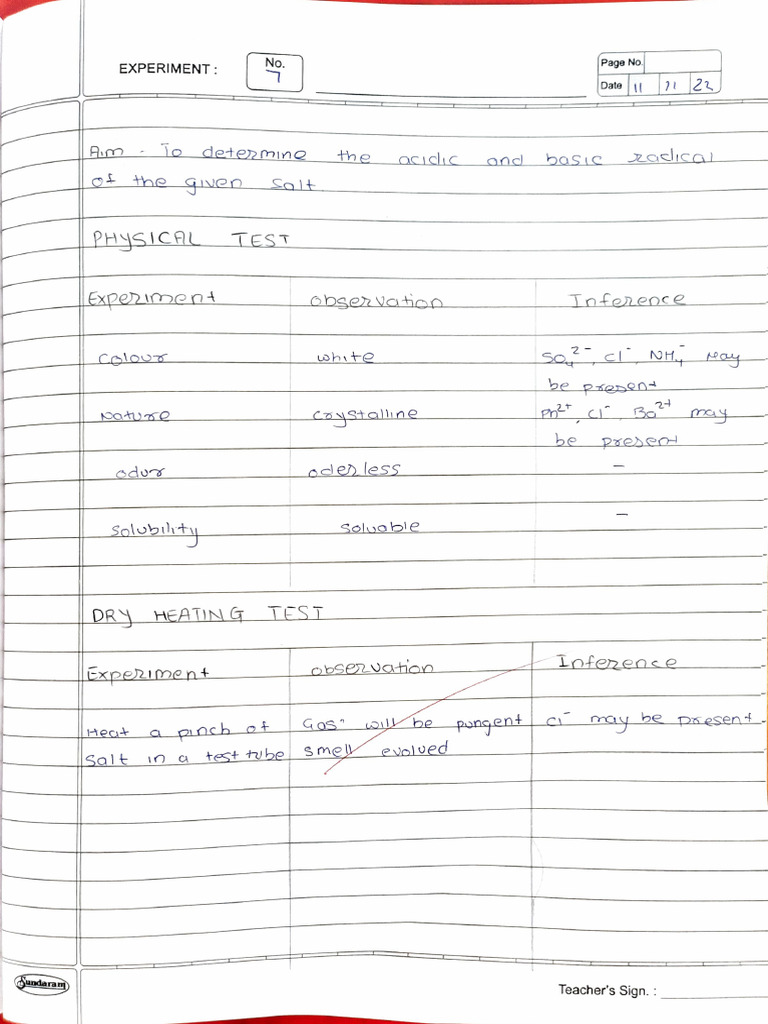 EXPERIMENT : No. 7
Page No.
Date 11 11 22
Aim - To determine the acidic and basic radical
of the given salt
PHYSICAL TEST
Experiment observation Inference
Colour white SO₄²⁻, Cl⁻, NH₄⁻ May
be present
Nature crystalline Pn²⁺, Cl⁻, Ba²⁺ may
be present
odur oderless –
solubility soluable –
DRY HEATING TEST
Experiment observation Inference
Heat a pinch of Gas will be pungent Cl⁻ may be present
salt in a test tube smell evolued
Sundaram
Teacher's Sign. :